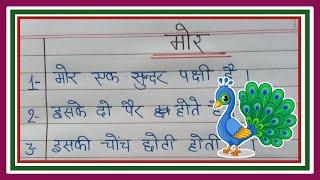 मोर
1- मोर एक सुन्दर पक्षी है ।
2- इसके दो पैर होते
3- इसकी चोंच छोटी होती